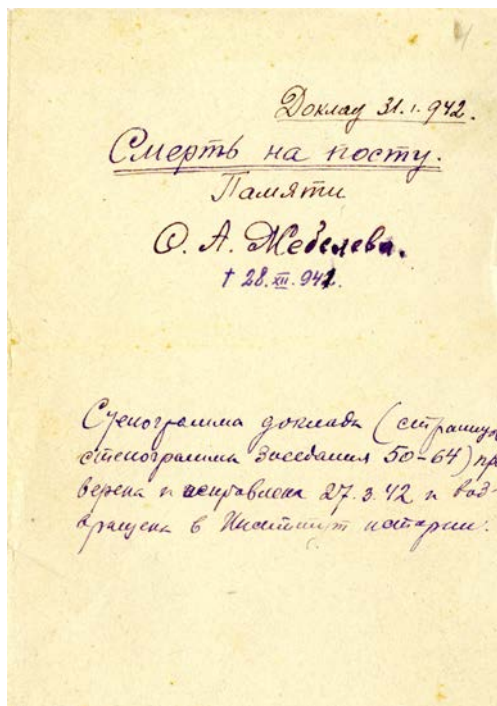 4
Доклад 31.1.942.
Смерть на посту.
Памяти
С. А. Жебелева.
† 28.XII.941.
Стенограмма доклада (страницы
стенограммы заседания 50-64) про
верена и исправлена 27.3.42 и воз-
вращена в Институт истории.